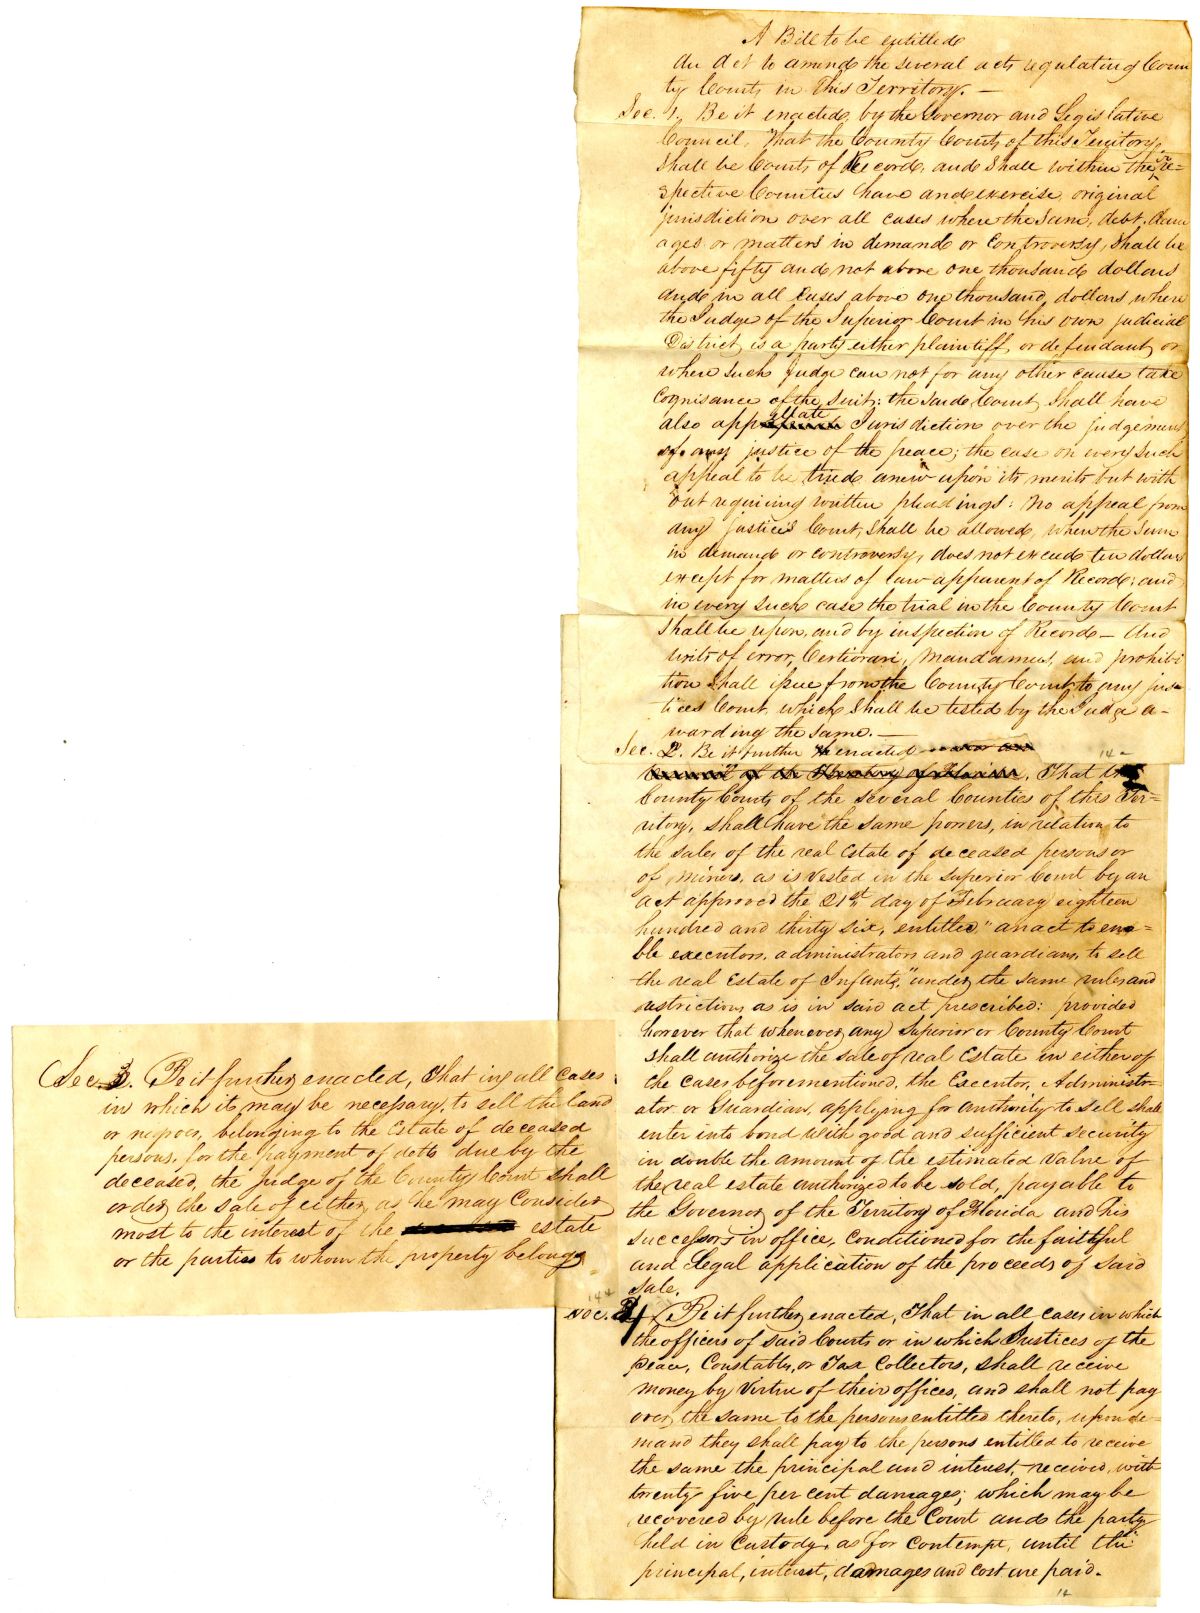 A Bill to be entitled
An Act to amend the several acts regulating Coun
ty Courts in this Territory. —
Sec. 1, Be it enacted, by the Governor and Legislative
Council, That the County Courts of this Territory,
Shall be Courts of Record, and Shall within the re-
spective Counties have and exercise, original
jurisdiction over all cases where the Sum, debt, dam
ages or matters in demand or Controversy, Shall be
above fifty and not above one thousand dollars
And in all cases above one thousand, dollars where
the Judge of the Superior Court in his own judicial
District, is a party either plaintiff, or defendant, or
where Such Judge can not for any other cause take
Cognisance of the Suit: the Said Court, Shall have
also appellate Jurisdiction over the judgements
of any justice of the peace; the case on every Such
appeal to be tried anew upon its merits but with
out requiring written pleadings: No appeal from
any justice's Court, Shall be allowed, when the Sum
in demand or controversy, does not exceed ten dollars
except for matters of law apparent of Record; and
in every Such case the trial in the County Court
Shall be upon, and by inspection of Record — And
writs of error, Certiorari, Mandamus, and prohibi
tion Shall issue from the County Court, to any jus
tices Court, which Shall be tested by the Judge a-
warding the Same. —
Sec. 2. Be it further enacted
of the Territory of Florida, That the
14
County Courts of the several Counties of this Ter=
ritory, shall have the same powers, in relation to
the sales of the real Estate of deceased persons or
of minors, as is vested in the Superior Court by an
act approved the 21st day of February eighteen
hundred and thirty six, entitled, "an act to ena=
ble executors, administrators and guardians, to sell
the real Estate of Infants," under the same rules and
restrictions as is in said act prescribed: provided
however that whenever any Superior or County Court
shall authorize the sale of real Estate in either of
the cases beforementioned, the Executor, Administr-
ator or Guardian, applying for authority to sell shall
enter into bond with good and sufficient security
in double the amount of the estimated value of
the real estate authorized to be sold, payable to
the Governor of the Territory of Florida and his
successors in office, Conditioned for the faithful
and Legal application of the proceeds of said
Sale.
Sec. 3. Be it further enacted, That in all cases
in which it may be necessary, to sell the land
or negroes, belonging to the Estate of deceased
persons, for the payment of debts due by the
deceased, the Judge of the County Court shall
order the sale of either, as he may Consider
most to the interest of the estate
or the parties to whom the property belongs
144
Sec. 4. Be it further enacted, That in all cases in which
the officers of said Courts or in which Justices of the
peace, Constables, or Tax Collectors, shall receive
money by virtue of their offices, and shall not pay
over the same to the persons entitled thereto, upon de=
mand they shall pay to the persons entitled to receive
the same the principal and interest, received, with
twenty five per cent damages; which may be
recovered by rule before the Court and the party
held in Custody, as for contempt, until the
principal, interest, damages and cost are paid.
14